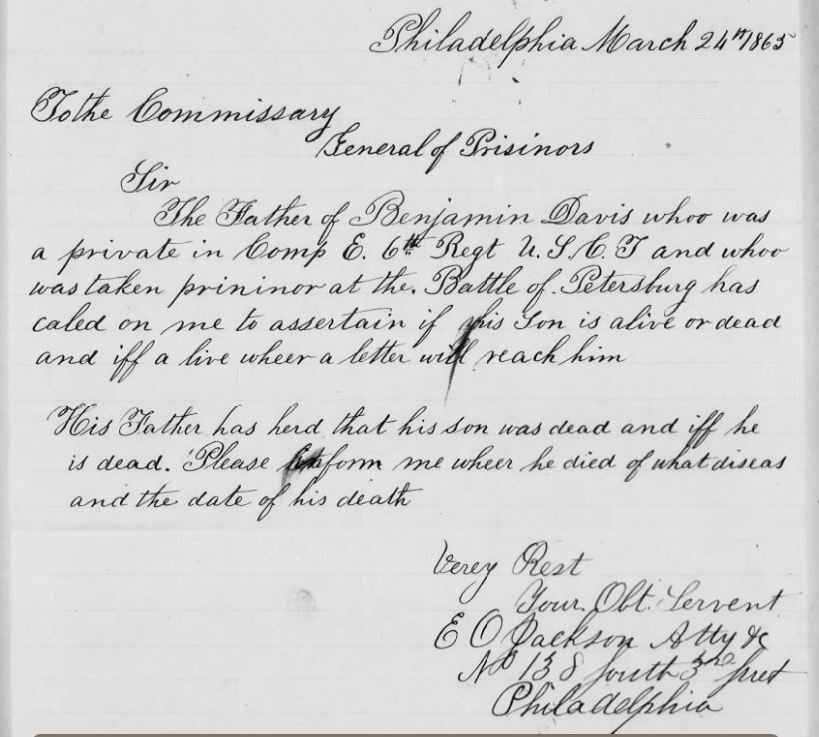 Philadelphia March 24th 1865
To the Commissary
General of Prisinors
Sir
The Father of Benjamin Davis whoo was
a private in Comp E. 6th Regt U.S.C.T and whoo
was taken prininor at the. Battle of. Petersburg has
caled on me to assertain if his Son is alive or dead
and iff a live wheer a letter will reach him
His Father has herd that his son was dead and iff he
is dead. Please inform me wheer he died of what diseas
and the date of his death
Verey Rest
Your. Obt. Servent
E O Jackson Atty &c
No 138 South 3rd Street
Philadelphia